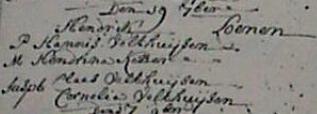 Den 19 7ber
Hendrik Loenen
P Hannis Velthuijsen
M Hendrina Ketter
Susph Claes Velthuijsen
Cornelia Velthuijsen